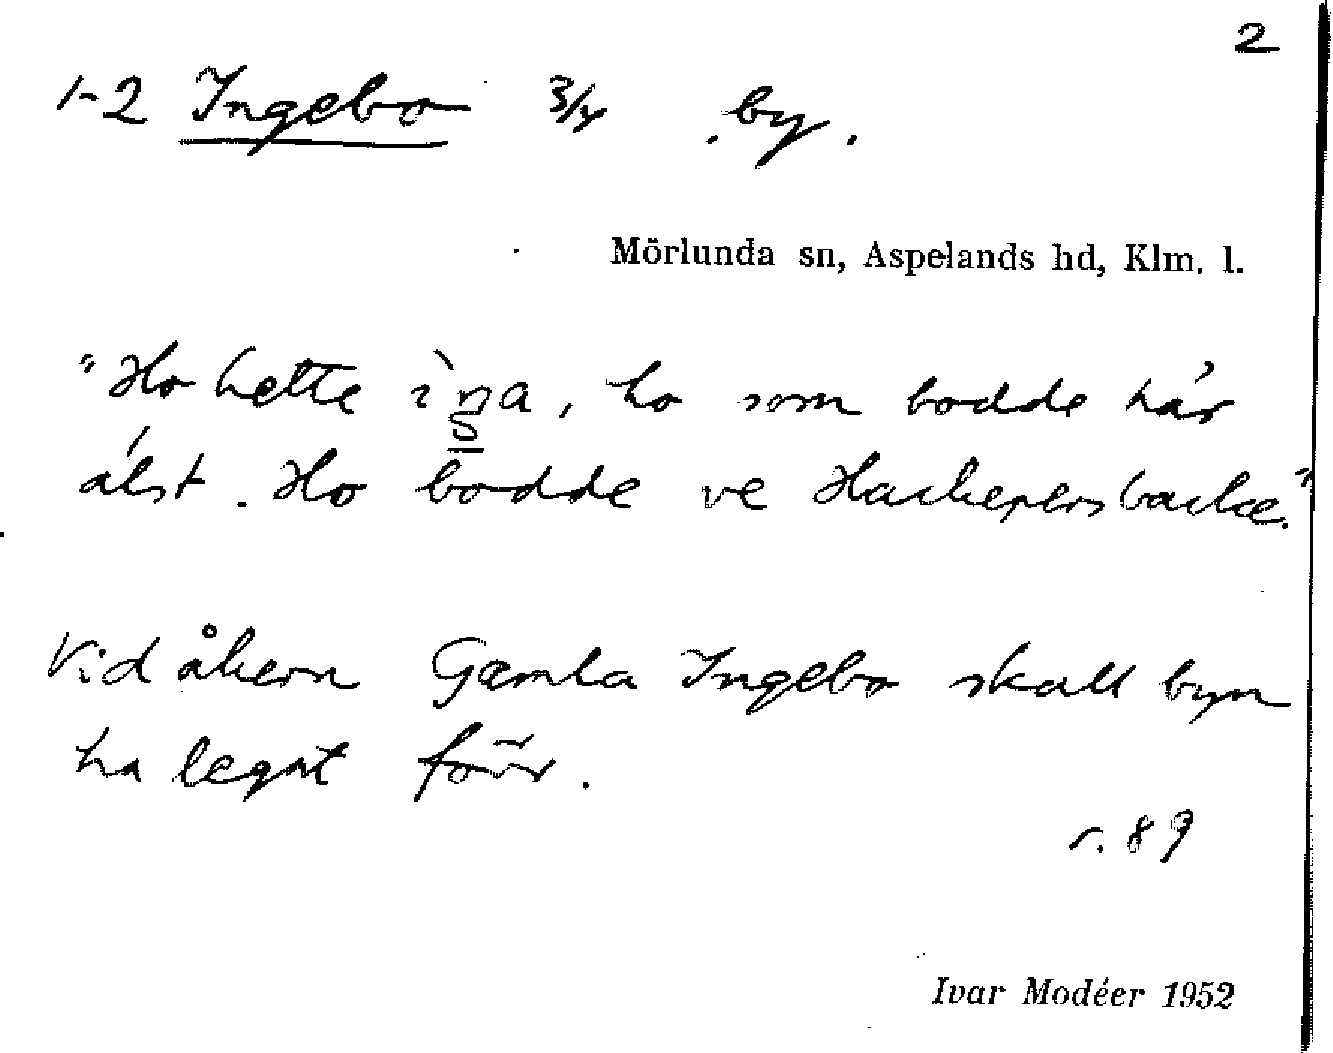 2
1-2 Ingebo 3/4 by.
Mörlunda sn, Aspelands hd, Klm. l.
"Ho hette ìŋa, ho som bodde här
älst. Ho bodde ve Hackepersbacke."
Vid åkern Gamla Ingebo skall byn
ha legat förr.
s. 89
Ivar Modéer 1952